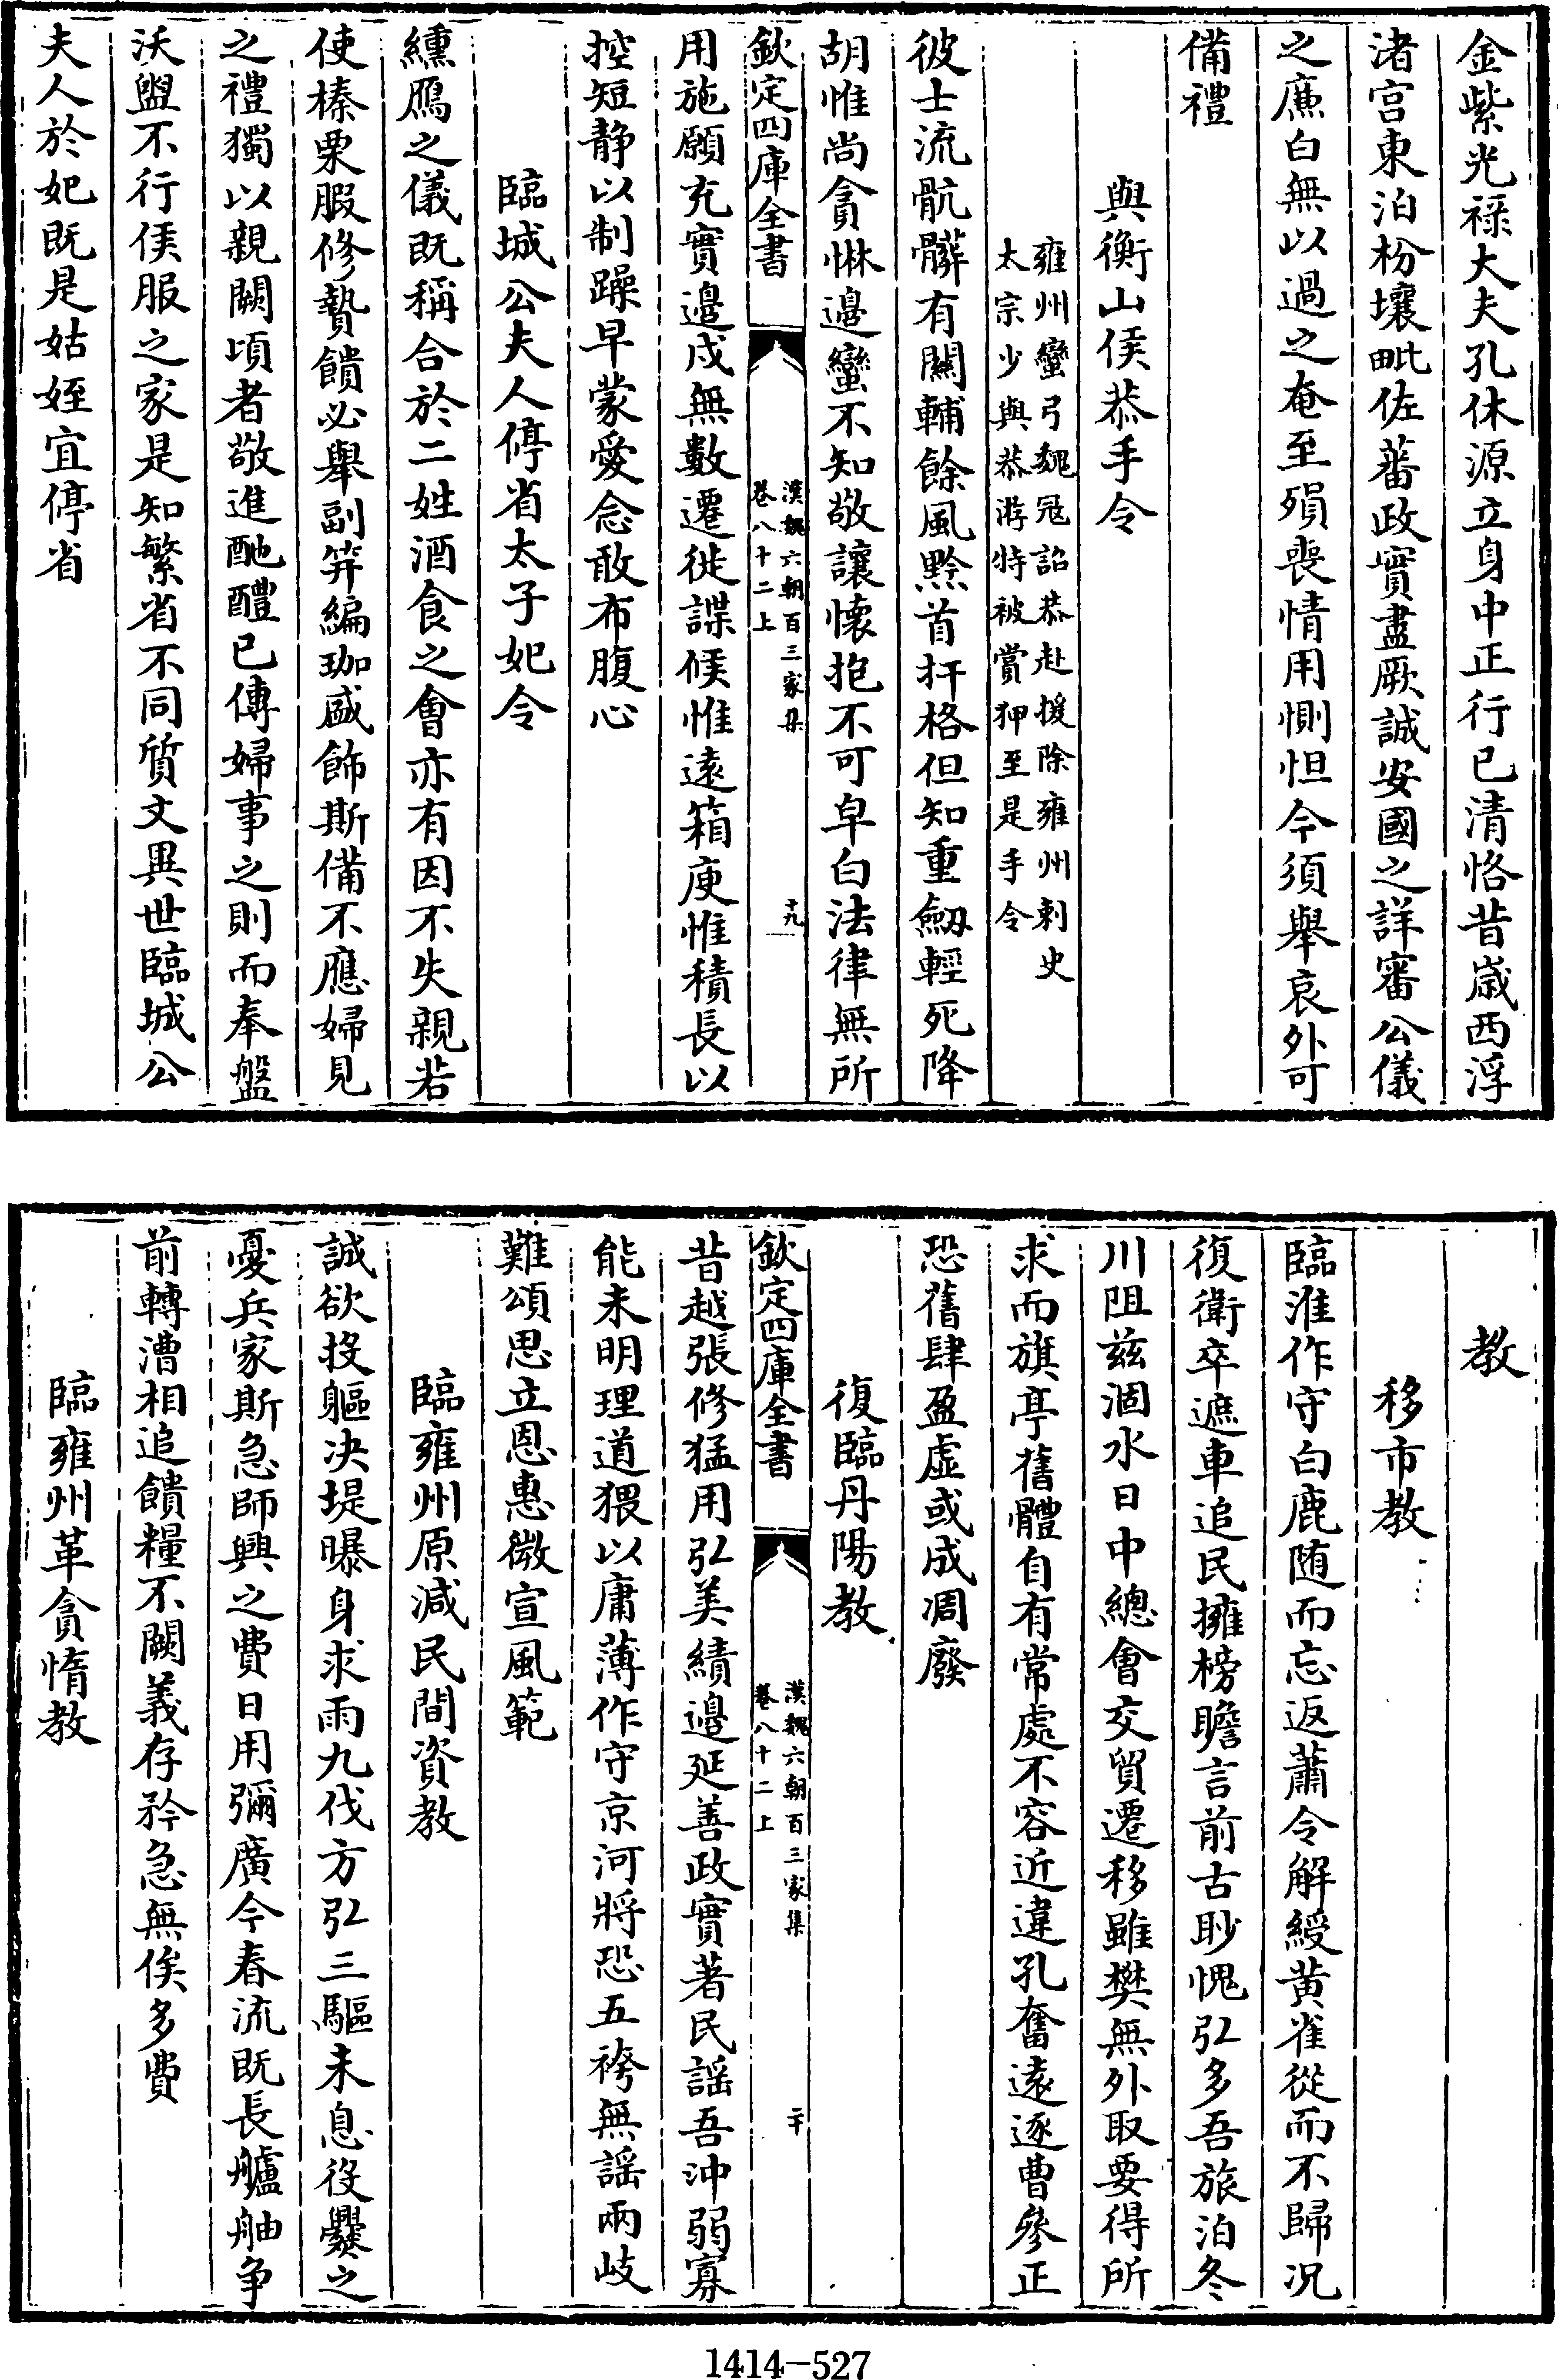 金紫光祿大夫孔休源立身中正行已清恪昔歲西浮
渚宫東泊枌壤毗佐蕃政實盡厥誠安國之詳審公儀
之廉白無以過之奄至殞喪情用惻怛今須舉哀外可
備禮
與衡山侯恭手令
雍州蠻弓魏冦詔恭赴援除雍州刺史
太宗少與恭游特被賞狎至是手令
彼士流骯髒有關輔餘風黔首扞格但知重劒輕死降
胡惟尚貪惏邉蠻不知敬讓懷抱不可皁白法律無所
欽定四庫全書
漢魏六朝百三家集
卷八十二上
十九
用施願充實邉戍無數遷徙諜候惟遠箱庾惟積長以
控短静以制躁早蒙愛念敢布腹心
臨城公夫人停省太子妃令
纁鴈之儀既稱合於二姓酒食之會亦有因不失親若
使榛栗腶修贄饋必舉副笄編珈盛飾斯備不應婦見
之禮獨以親闕頃者敬進酏醴已傳婦事之則而奉盤
沃盥不行侯服之家是知繁省不同質文異世臨城公
夫人於妃既是姑姪宜停省
教
移市教
臨淮作守白鹿随而忘返蕭令解綬黄雀從而不歸况
復衛卒遮車追民擁榜瞻言前古眇愧弘多吾旅泊冬
川阻兹涸水日中總會交貿遷移雖樊無外取要得所
求而旗亭舊體自有常處不容近違孔奮遠逐曹參正
恐舊肆盈虚或成凋廢
復臨丹陽教
欽定四庫全書
漢魏六朝百三家集
卷八十二上
二十
昔越張修猛用弘美績邉延善政實著民謡吾沖弱寡
能未明理道猥以庸薄作守京河將恐五袴無謡兩岐
難頌思立恩惠微宣風範
臨雍州原减民間資教
誠欲投軀决堤曝身求雨九伐方弘三驅未息役㸑之
憂兵家斯急師興之費日用彌廣今春流既長艫舳争
前轉漕相追饋糧不闕義存矜急無俟多費
臨雍州革貪惰教
1414—527